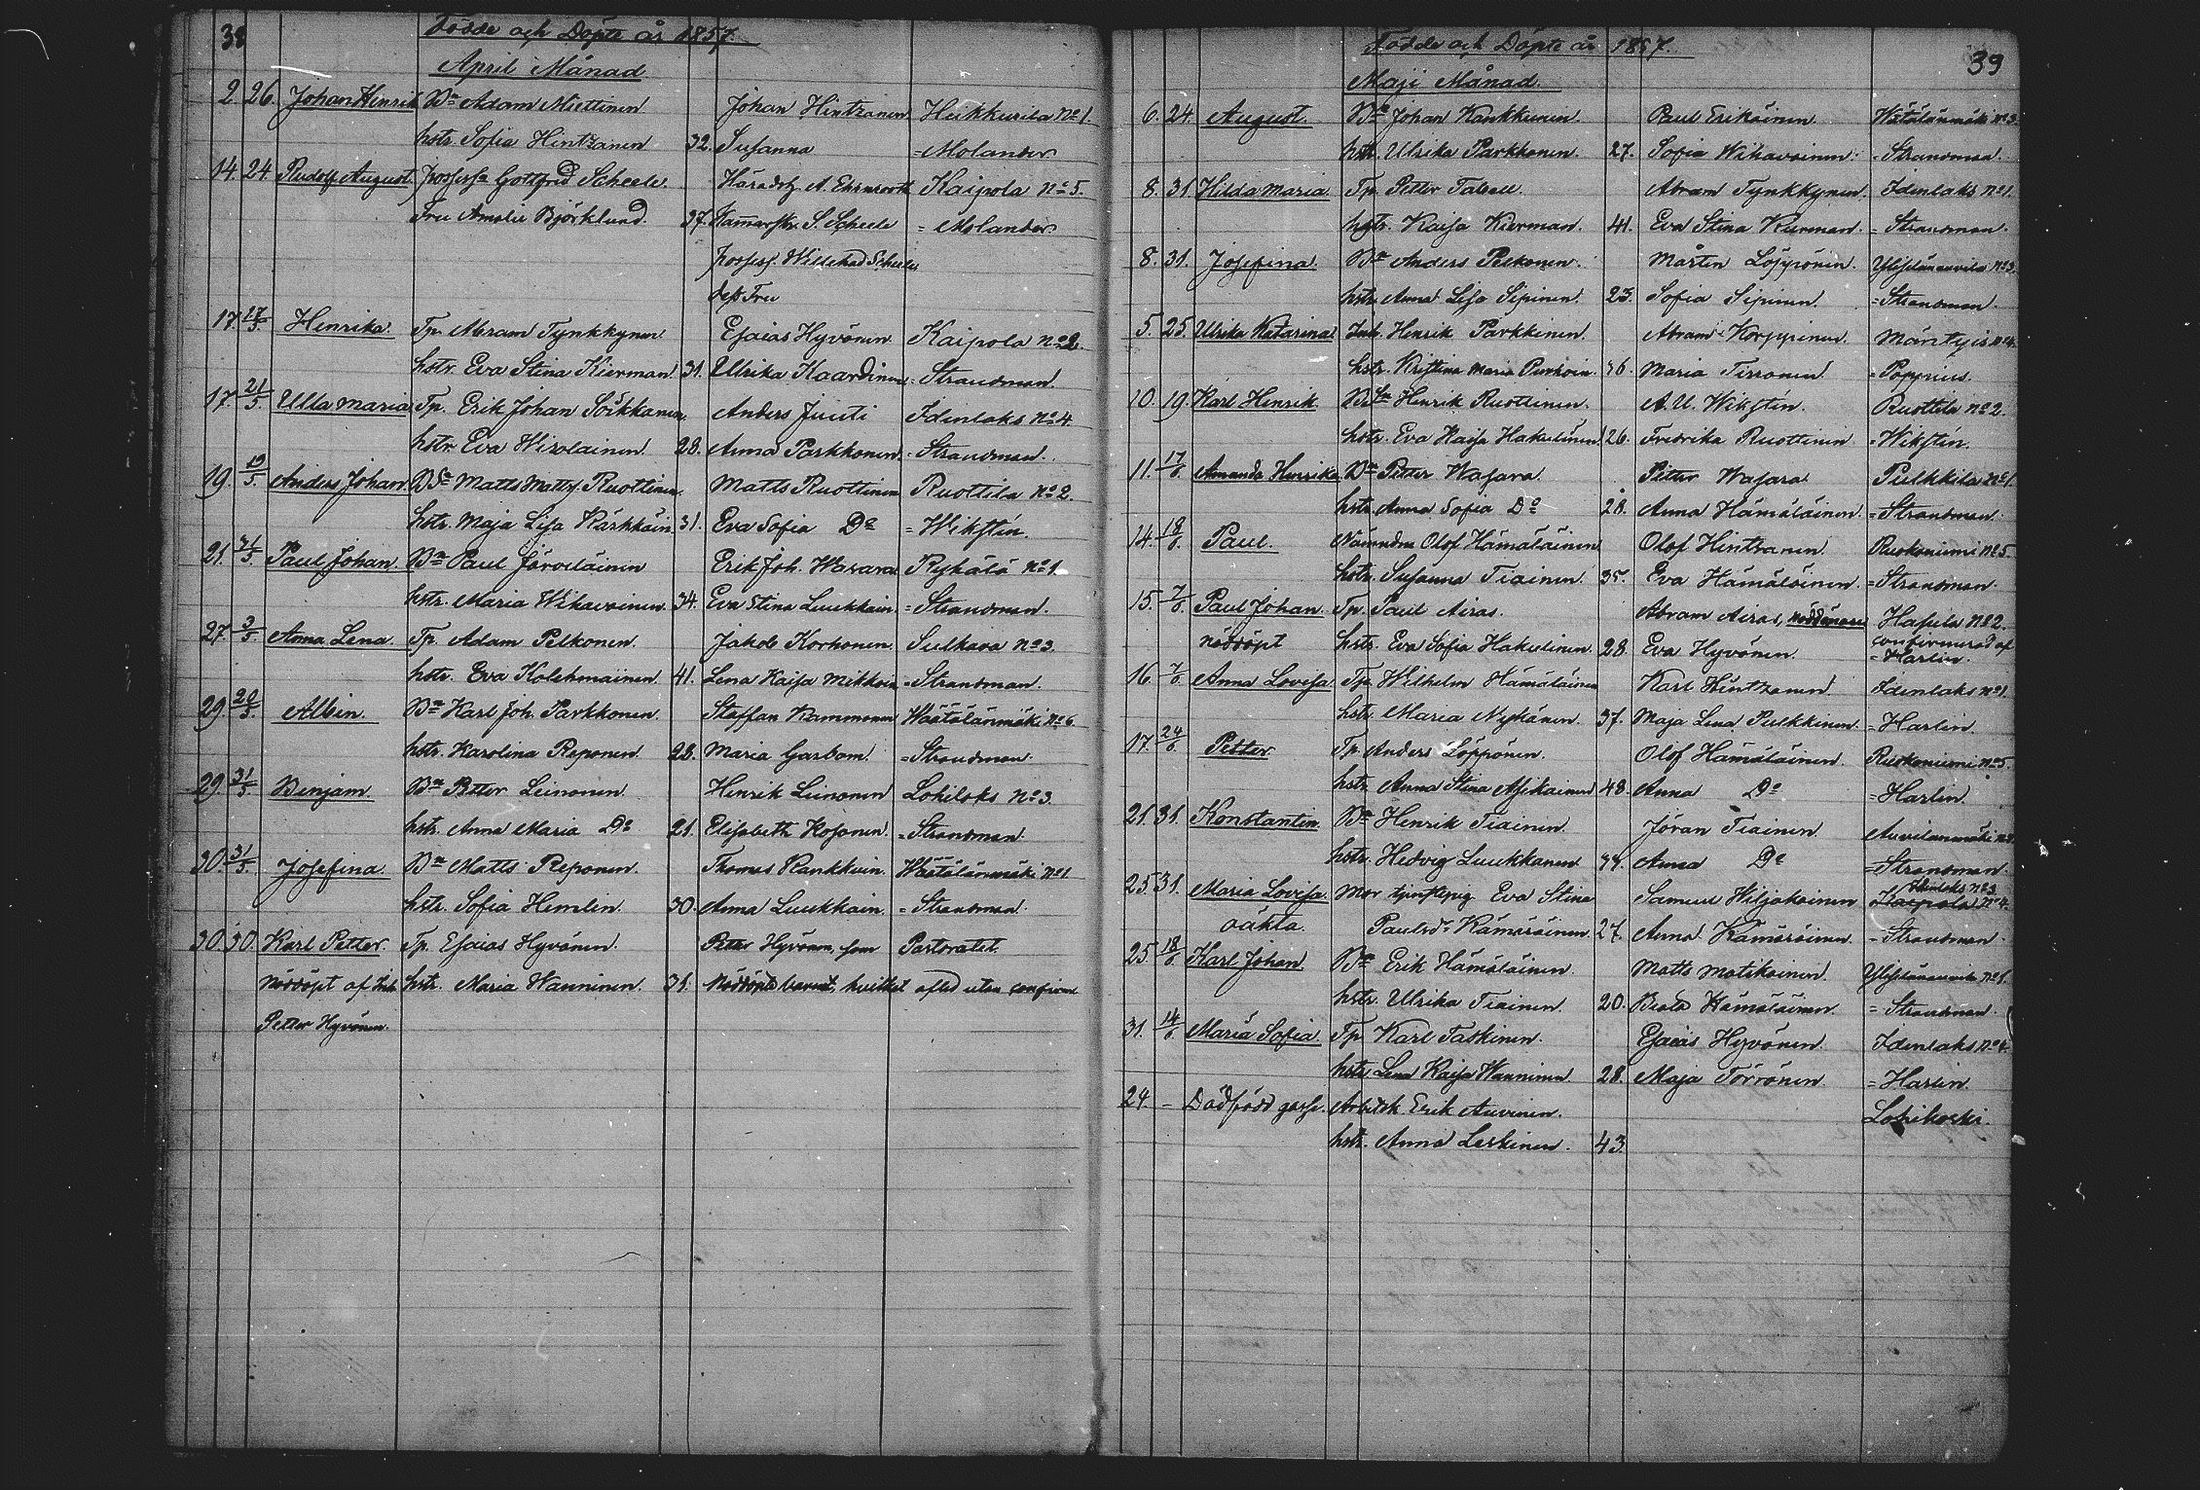 38
Födde och Döpte år 1857.
April Månad
2. 26. Johan Henrik Bn Adam Miettinen Johan Hintzanen Heikkurila No 1.
hstr. Sofia Hintzanen 32. Susanna = Molander
14. 24. Rudolf August Gottfrid Scheele A. Ehrnrooth Kaipola No 5.
Fru Amalie Björklund. 37. S. Scheele = Molander.
Possess. Willehad Scheele
dess Fru
17. 17/5. Henrika. Tp. Abram Tynkkynen Esaias Hyvönen Kaipola No 2.
hstr. Eva Stina Kierman. 31. Ulrika Kaardinen = Strandman.
17. 21/5. Ulla Maria Tp. Erik Johan Söikkanen Anders Juuti Idenlaks No 4.
hstr. Eva Wirolainen 28. Anna Parkkonen. = Strandman.
19. 19/5. Anders Johan. Matts Matts. Ruottinen Matts Ruottinen Ruottila No 2.
hstr. Maja Lisa Kärkkäin. 31. Eva Sofia Do = Wikstén.
21. 31/5. Paul Johan. Bn Paul Järveläinen Erik Joh. Wasara Rykälä No 1.
hstr. Maria Wihavainen. 34. Eva Stina Luukkain. = Strandman.
27. 3/5. Anna Lena. Tp. Adam Pelkonen. Jakob Korhonen. Sulkava No 3.
hstr. Eva Kolehmainen. 41. Lena Kaisa Mikkoin. = Strandman.
29. 20/5. Albin. Bn Karl Joh. Parkkonen. Staffan Kammonen Häätälänmäki No 6.
hstr. Karolina Reponen. 28. Maria Garbom. = Strandman.
29. 31/5. Benjam. Bn Petter Leinonen. Henrik Leinonen Lohilaks No 3.
hstr. Anna Maria Do 21. Elisabeth Kosonen. = Strandman.
30. 31/5. Josefina. Bn Matts Reponen. Thomas Kankkuin. Häätälänmäki No 1
hstr. Sofia Hemlin. 30. Anna Luukkain. = Strandman.
30. 30. Karl Petter. Tp. Esaias Hyvönen. Petter Hyvönen, som Pastoratet.
nöddöpt af hstr. Maria Hanninen. 31. Nöddöpte barnet, hvilket afled utan
Petter Hyvönen.
39
Födde och Döpte år 1857.
Maji Månad.
6. 24. August. Bn Johan Kankkunen. Paul Erikäinen Hätälänmäki No 3.
hstr. Ulrika Parkkonen. 27. Sofia Wihavainen. = Strandman.
8. 31. Hilda Maria. Tp. Petter Taball. Abram Tynkkynen. Idenlaks No 1.
hstr. Kaisa Kierman. 41. Eva Stina Kierman. = Strandman.
8. 31. Josefina. Bn Anders Pelkonen. Mårten Löppönen.
hstr. Anna Lisa Sipinen. 23. Sofia Sipinen. = Strandman.
5. 25. Ulrika Katarina. Inh. Henrik Parkkinen. Abram Korppinen. Mäntyis No 4.
hstr. Kristina Maria 36. Maria Tirronen. = Poppius.
10. 19. Karl Henrik. Henrik Ruottinen. A. U. Wikstén. Ruottila No 2.
hstr. Eva Kaisa Hakulinen. 26. Fredrika Ruottinen = Wikstén.
11. 17/6. Amanda Henrika Bn Petter Wasara. Petter Wasara. Pulkkila No 1.
hstr. Anna Sofia Do 28. Anna Hämäläinen. = Strandman.
14. 18/6. Paul. Nämndm. Olof Hämäläinen Olof Hintzanen. Ruokoniemi No 5.
hstr. Susanna Tiainen. 35. Eva Hämäläinen. = Strandman.
15. 7/6. Paul Johan. Tp. Paul Airas. Abram Airas, Hasula No 2.
nöddöpt hstr. Eva Sofia Hakulinen. 28. Eva Hyvönen. confirmerad af
= Harlin.
16. 7/6. Anna Lovisa. Tp. Wilhelm Hämäläinen Karl Hintzanen. Idenlaks No 1.
hstr. Maria Nykänen. 37. Maja Lena Pulkkinen. = Harlin.
17. 24/6. Petter Tp. Anders Löppönen. Olof Hämäläinen. Ruokoniemi No 5.
hstr. Anna Stina Asikainen 48. Anna Do = Harlin.
21. 31. Konstantin. Bn Henrik Tiainen. Jöran Tiainen. Auvilanmäki
hstr. Hedvig Luukkanen 34. Anna Do = Strandman.
25. 31. Maria Lovisa. Mor Eva Stina Samuel Wiljakainen Idenlaks No 3
Kaipola No 4.
oäkta. Paulsdr Kämäräinen. 27. Anna Kämäräinen. = Strandman.
25. 18/6. Karl Johan. Bn Erik Hämäläinen. Matts Matikainen.
hstr. Ulrika Tiainen. 20. Beata Hämäläinen. = Strandman.
31. 14/6. Maria Sofia. Tp. Karl Taskinen. Esaias Hyvönen. Idenlaks No 4.
hstr. Lena Kaisa Hanninen. 28. Maja Törrönen. = Harlin.
24. – Dödfödd gosse. Arbetsk. Erik Auvinen. Lohikoski.
hstr. Anna Leskinen. 43.